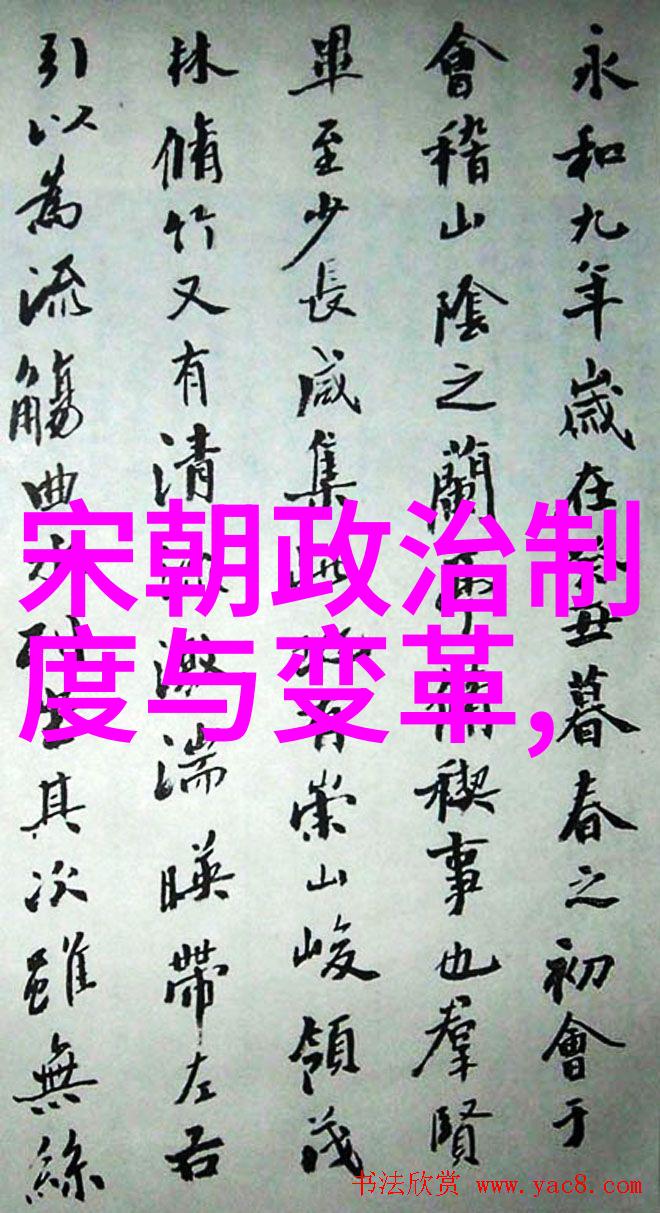 永和九年歲在癸丑暮春之初會于
會稽山陰之蘭亭脩禊事也羣賢
畢至少長咸集此地有崇山峻領茂
林脩竹又有清流激湍暎帶左右
引以為流觴曲水列坐其次雖無絲
宋朝政治制
度与变革,
书法欣赏 www.yac8.com